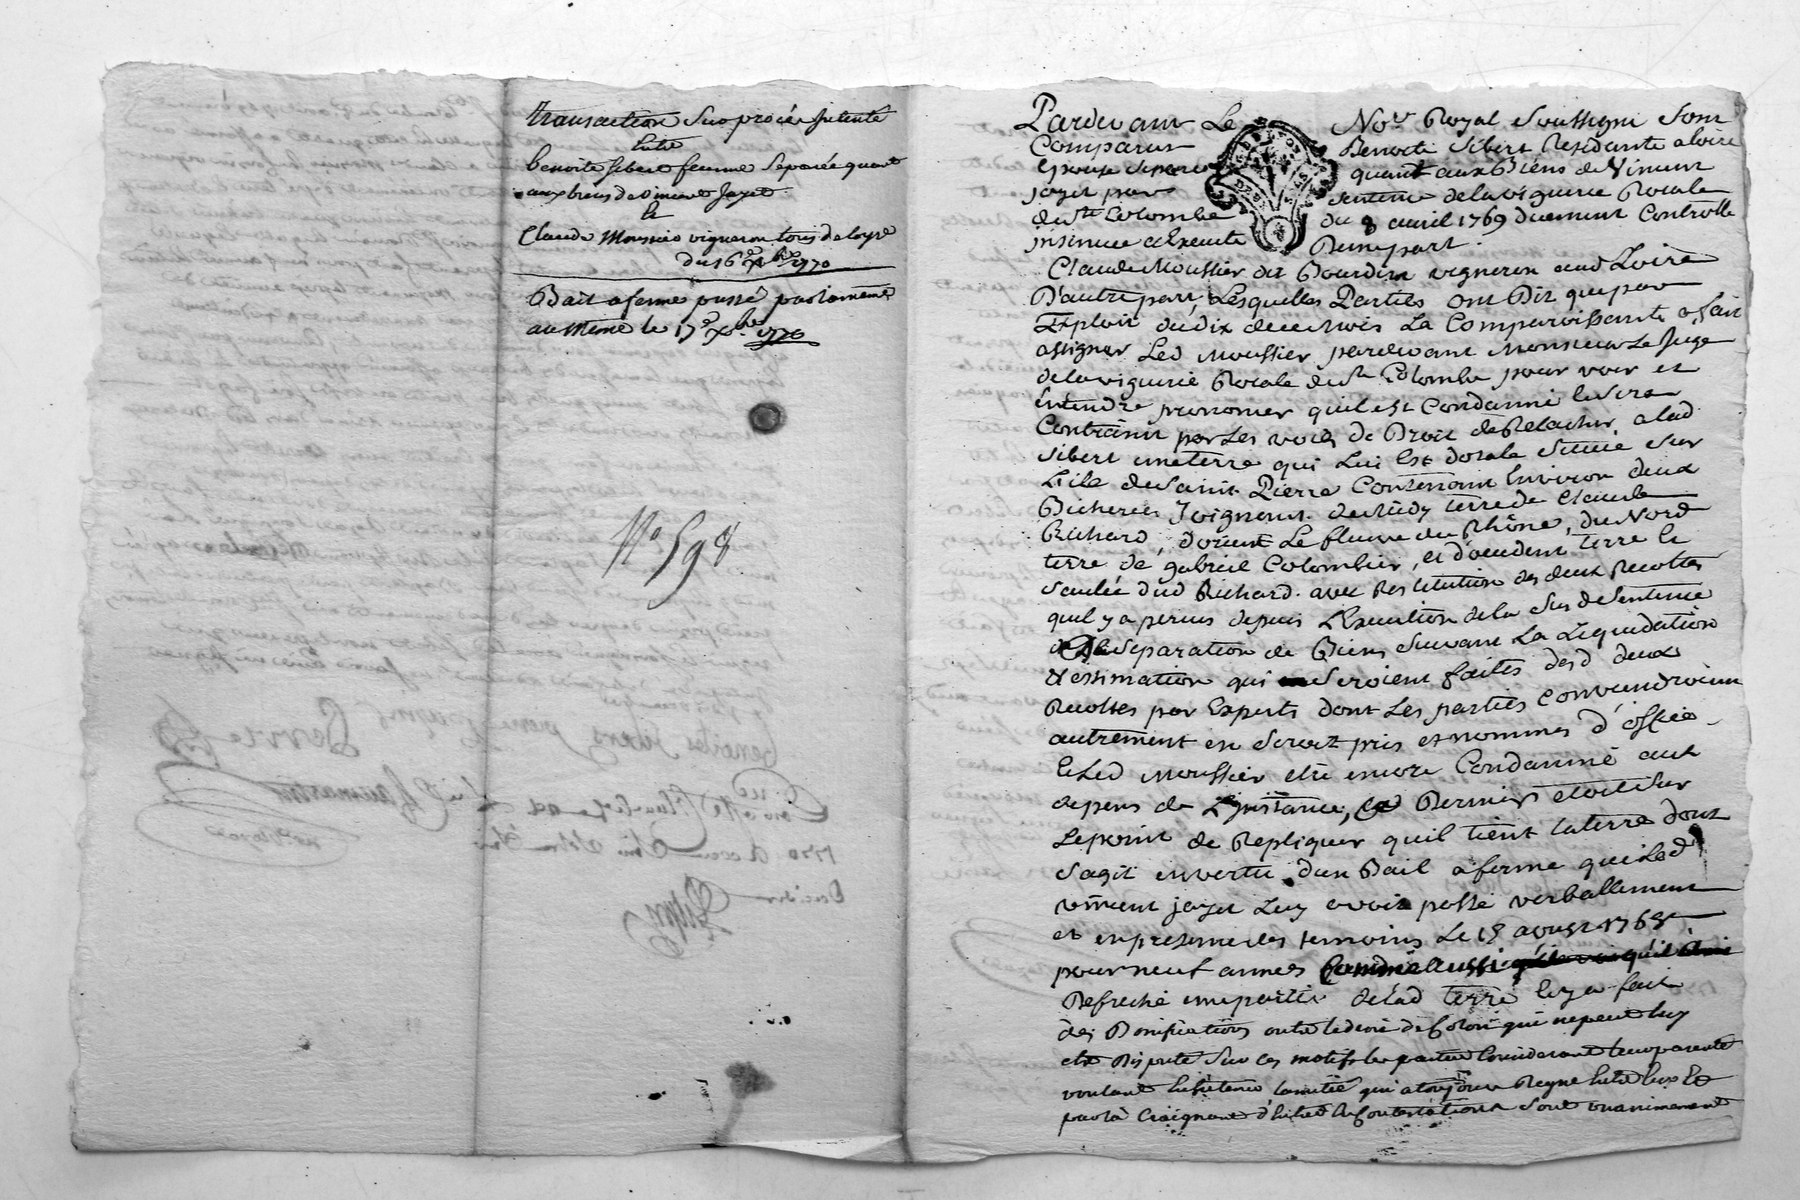 transaction Sur procés intenté
Entre
benoite sibert femme Separée quant
aux biens de vincent Jayet
Et
Claude Moussier vigneron tous de loyre
du 16e Xbre 1770
Bail a ferme passé par la meme
au Meme le 17e Xbre 1770
No 598
Pardevant Le Nore Royal Soussigné Sont
Comparus Benoite Sibert Residante a loire
Epouse Separée quant aux Biens de Vincent
jayet par Sentence de la viguerie Royale
de Ste Colombe du 8 avril 1769 duement Controllé
insinuée et Executé D'une part.
Claude Moussier dit Bourdin vigneron aud Loire
D'autre part, Lesquelles Parties ont Dit que par
Exploit du dix de ce Mois La Comparoissante a fait
assigner Led Moussier pardevant Monsieur Le Juge
de la viguerie Royale de Ste Colombe pour voir et
entendre prononcer qu'il est Condamné et Sera
Contraint par Les voies de Droit de Relacher a lad
Sibert une terre qui Lui Est dotale Située Sur
L'ile de Saint Pierre Contenant Environ deux
Bicherées Joignant de Midy terre de Claude
Richard, d'orient Le fleuve du Rhône, du Nord
terre de gabriel Colombier, et d'occident terre et
Saulée dud Richard. avec Restitution des deux Recoltes
qu'il y a perçues depuis L'Execution de la Sus de Sentence
de Separation de Biens Suivant La Liquidation
& estimation qui Seroient faites desd deux
Recoltes par Experts dont Les parties Conviendroient
autrement en Seroit pris et nommés d'office
Et Led Moussier être encore Condamné aux
depens de L'instance, Ce Dernier etoit Sur
Le point de Repliquer qu'il tient la terre dont
S'agit en vertu d'un Bail a ferme que Led
vincent jayet Luy avoit passé verballement
et en presence des temoins Le 15 aoust 1768
pour neuf années
Defriché une partie de lad terre Et y a fait
des Bonifications
être Disputé Sur ces motifs les parties Considerant leur parenté
voulant Entretenir l'amitié qui a toujours Regné Entre Eux Et
par là Craignant d'Entrer En Contestations Sont unanimement